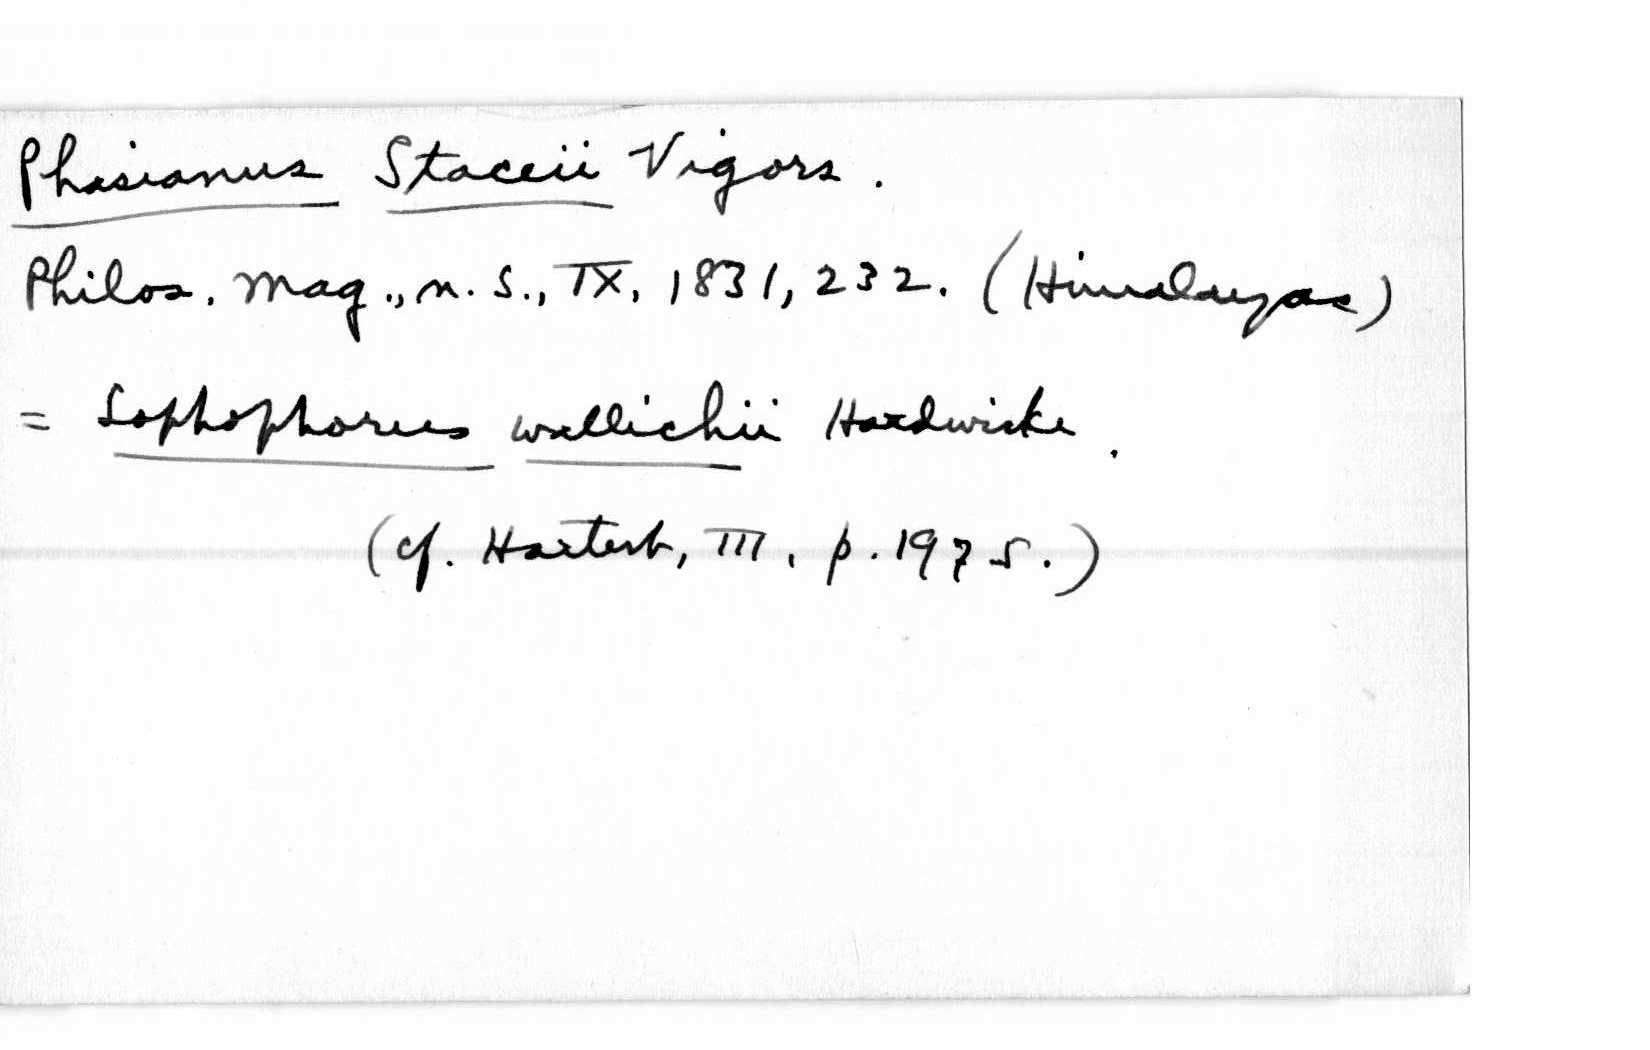 Phasianus Staceii Vigors.
Philos. Mag., n. S., IX, 1831, 232. (Himalayas)
= Lophophorus wallichii Hardwicke.
(cf. Hartert, III, p. 1975.)